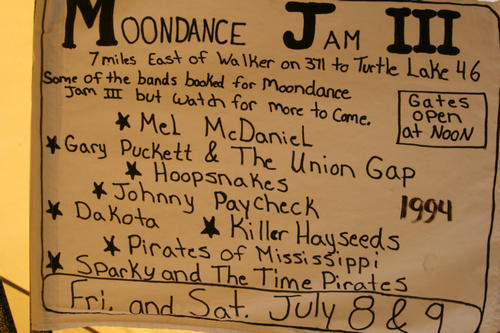 MOONDANCE JAM III
7 miles East of Walker on 371 to Turtle Lake 46
Some of the bands booked for Moondance
Jam III but watch for more to come.
Gates
open
at NOON
★ Mel McDaniel
★ Gary Puckett & The Union Gap
★ Hoopsnakes
★ Johnny Paycheck
1994
★ Dakota ★ Killer Hayseeds
★ Pirates of Mississippi
★ Sparky and The Time Pirates
Fri. and Sat. July 8 & 9